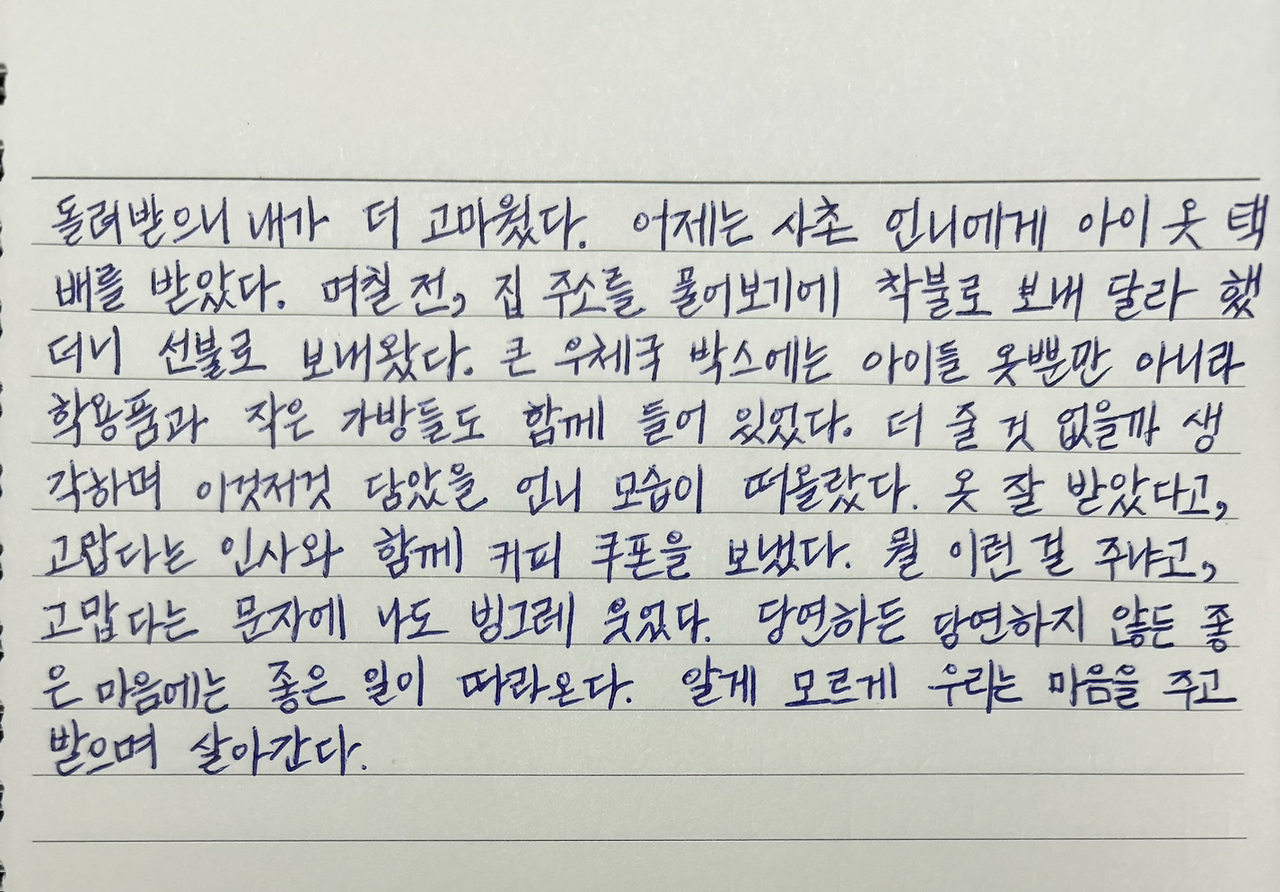 돌려받으니 내가 더 고마웠다. 어제는 사촌 언니에게 아이 옷 택
배를 받았다. 며칠 전, 집 주소를 물어보기에 착불로 보내 달라 했
더니 선불로 보내왔다. 큰 우체국 박스에는 아이들 옷뿐만 아니라
학용품과 작은 가방들도 함께 들어 있었다. 더 줄 것 없을까 생
각하며 이것저것 담았을 언니 모습이 떠올랐다. 옷 잘 받았다고,
고맙다는 인사와 함께 커피 쿠폰을 보냈다. 뭘 이런 걸 주냐고,
고맙다는 문자에 나도 빙그레 웃었다. 당연하든 당연하지 않든 좋
은 마음에는 좋은 일이 따라온다. 알게 모르게 우리는 마음을 주고
받으며 살아간다.